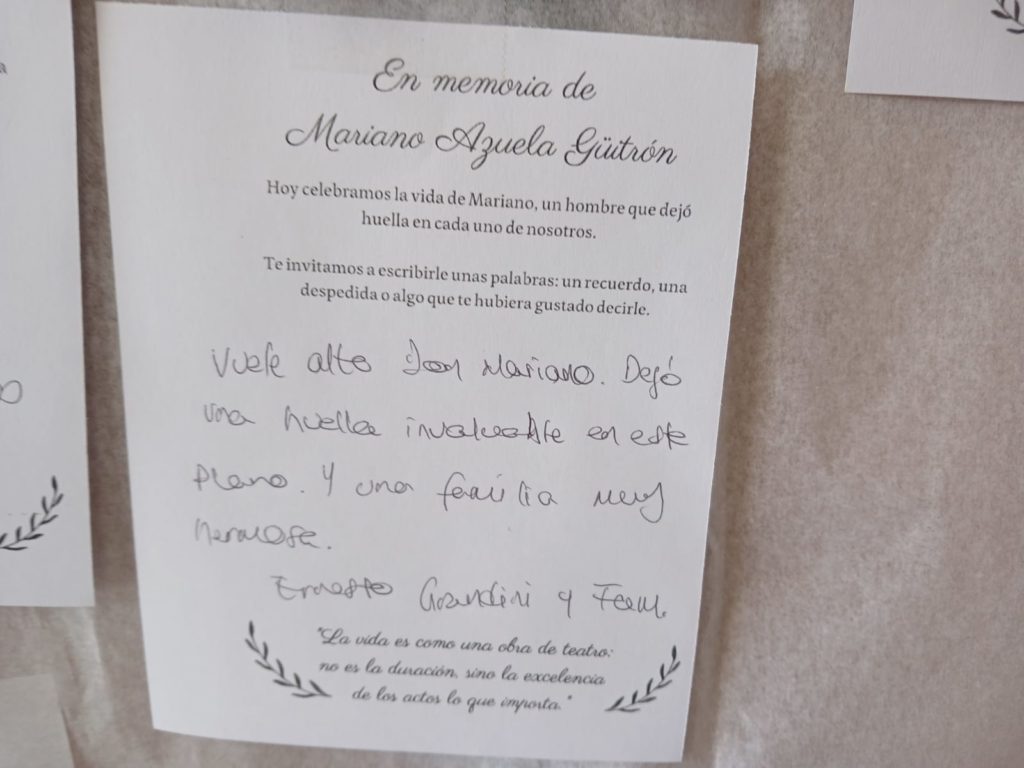 En memoria de
Mariano Azuela Güitrón
Hoy celebramos la vida de Mariano, un hombre que dejó
huella en cada uno de nosotros.
Te invitamos a escribirle unas palabras: un recuerdo, una
despedida o algo que te hubiera gustado decirle.
Vuele alto Don Mariano. Dejó
una huella invaluable en este
plano. Y una familia muy
hermosa.
Ernesto Grandini y Fam.
"La vida es como una obra de teatro:
no es la duración, sino la excelencia
de los actos lo que importa."